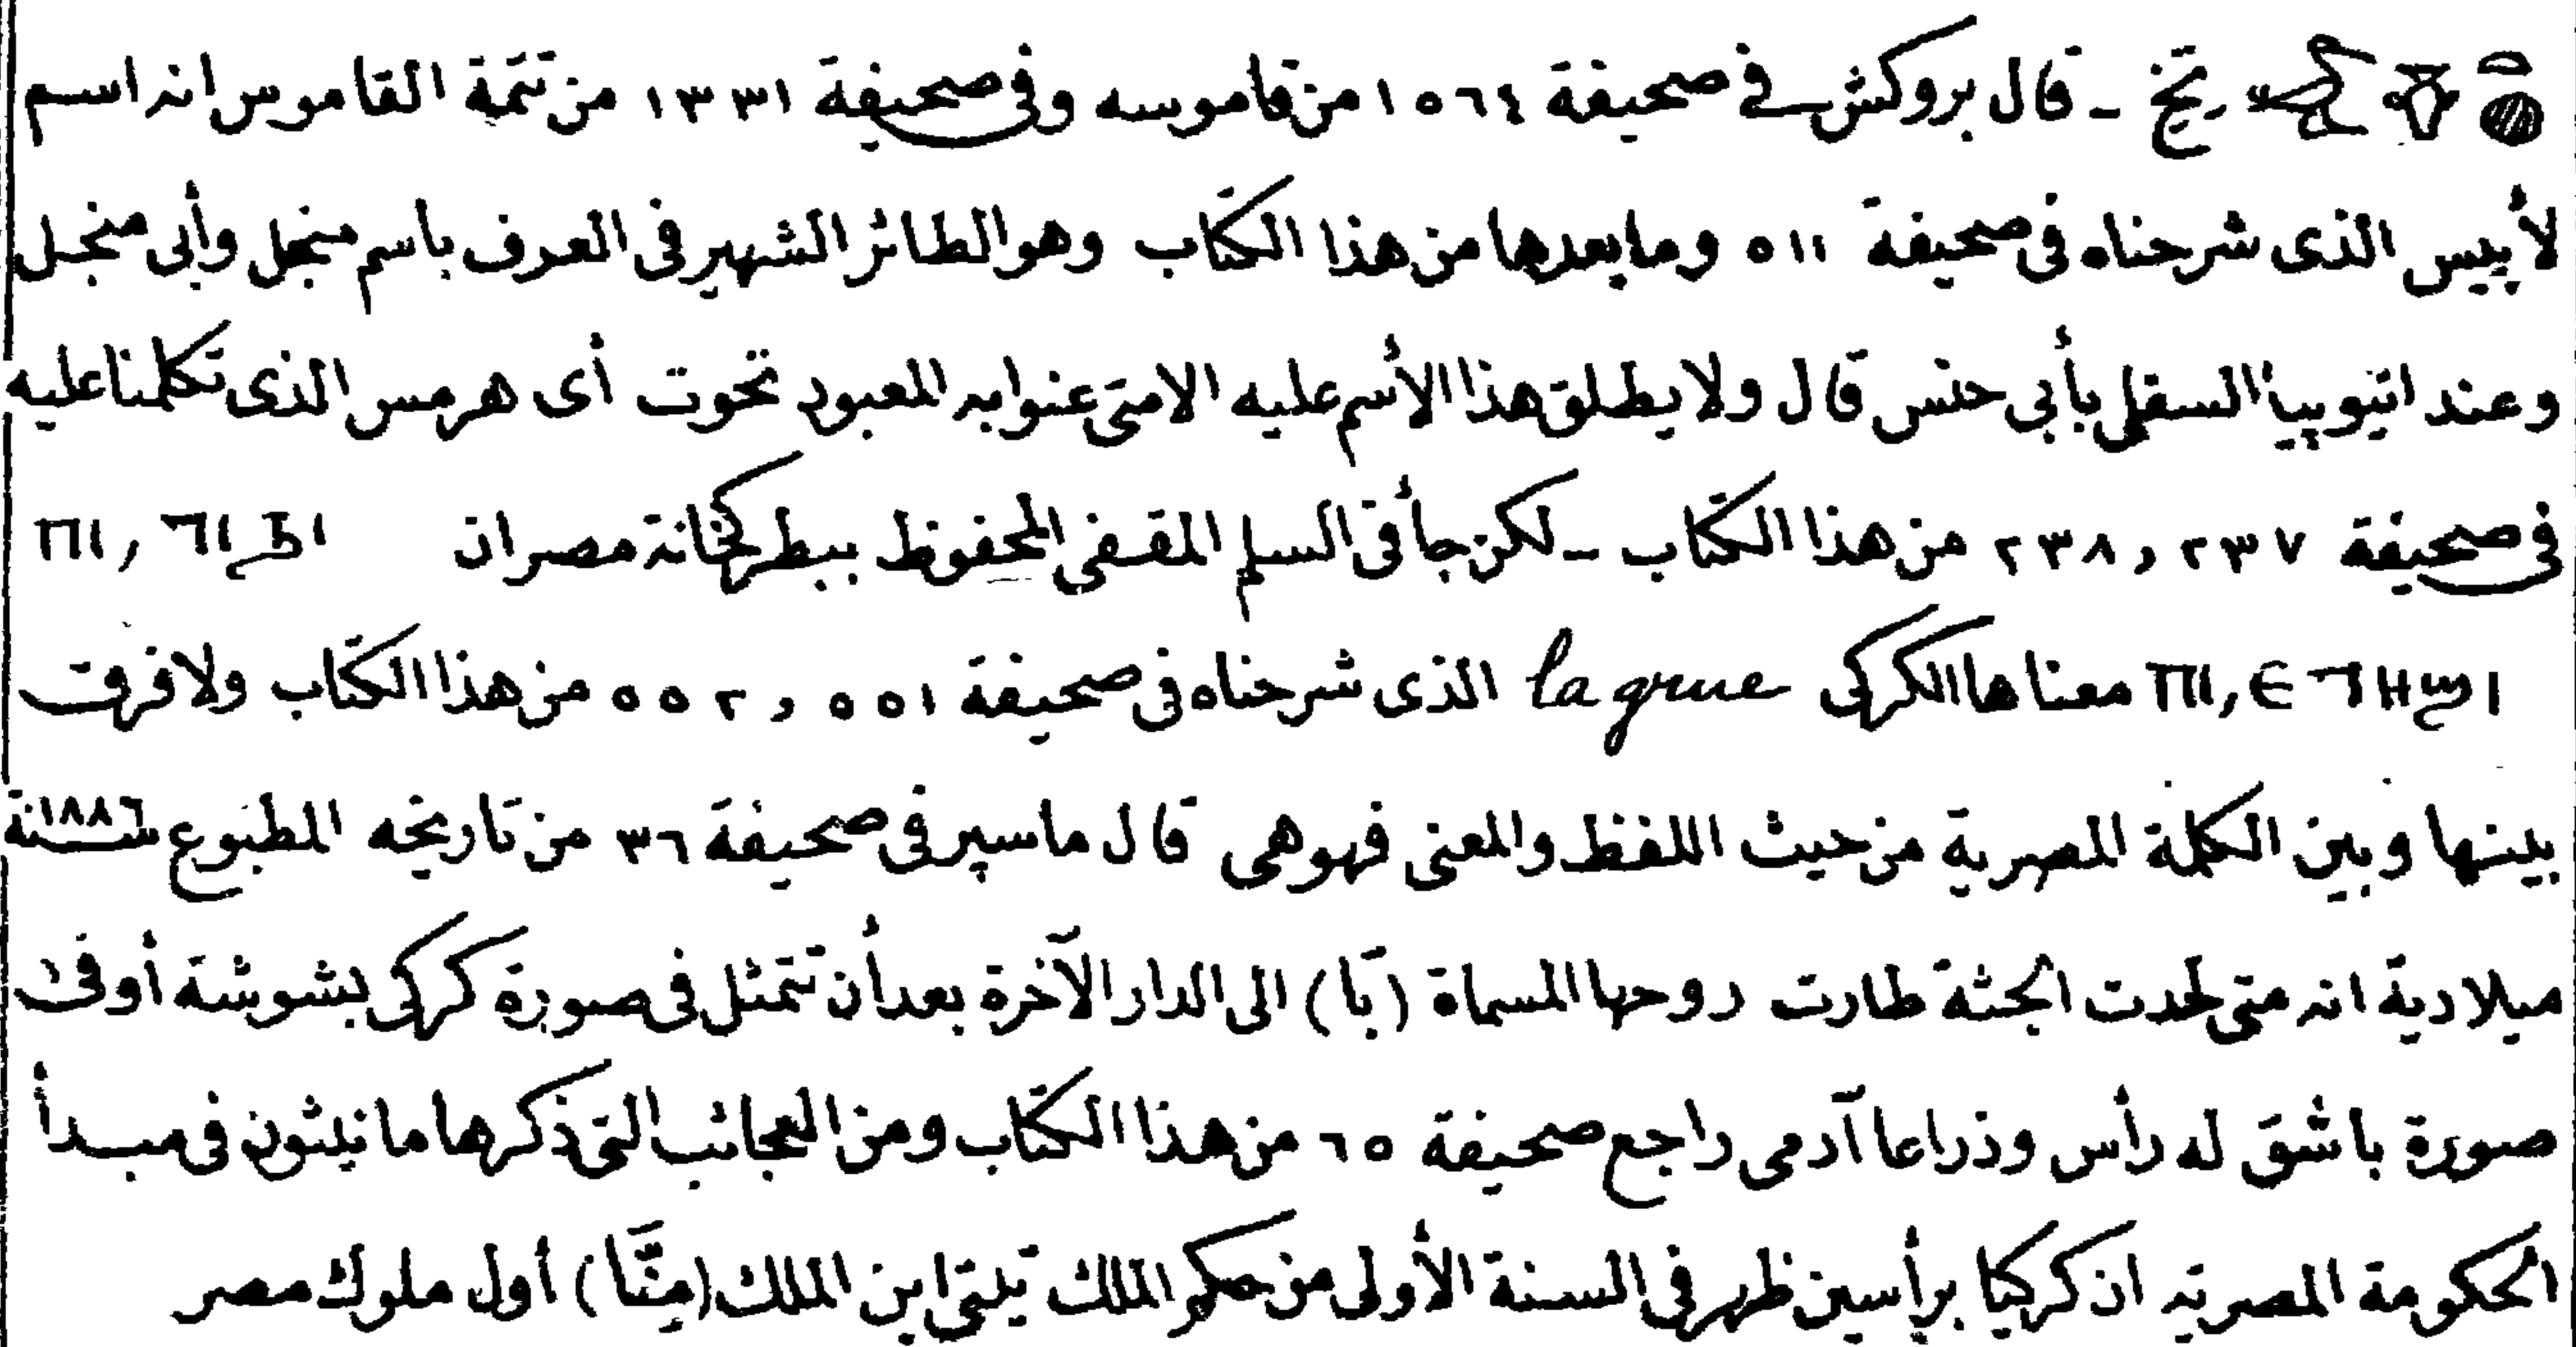 تخ - قال بروكش في صحيفة ١٥٦٤ من قاموسه وفي صحيفة ١٣٣١ من تتمة القاموس انه اسم
لأبيس الذى شرحناه فى صحيفة ٥١١ وما بعدها من هذا الكتاب وهو الطائر الشهير فى العرف باسم منجل وأبى منجل
وعند اتيوپيا السفلى بأبى حنس قال ولا يطلق هذا الأسم عليه الا متى عنوا به المعبود تحوت أى هرمس الذى تكلمنا عليه
فى صحيفة ٢٣٧ و ٢٣٨ من هذا الكتاب - لكن جأ فى السلم المقفى المحفوظ ببطركخانة مصر ان
معناها الكركى la grue الذى شرحناه فى صحيفة ٥٥١ و ٥٥٢ من هذا الكتاب ولا فرق
بينها وبين الكلمة المصرية من حيث اللفظ والمعنى فهو هى قال ماسپرو فى صحيفة ٣٦ من تاريخه المطبوع سنة ١٨٨٦
ميلادية انه متى لحدت الجثة طارت روحها المسماة (بَا) الى الدار الآخرة بعد أن تتمثل فى صورة كركى بشوشة أو فى
صورة باشق له رأس وذراعا آدمى راجع صحيفة ٦٥ من هذا الكتاب ومن العجائب التى ذكرها مانيثون فى مبدأ
الحكومة المصرية ان كركيا برأسين ظهر فى السنة الأولى من حكم الملك تيتى ابن الملك (مِنَّا) أول ملوك مصر